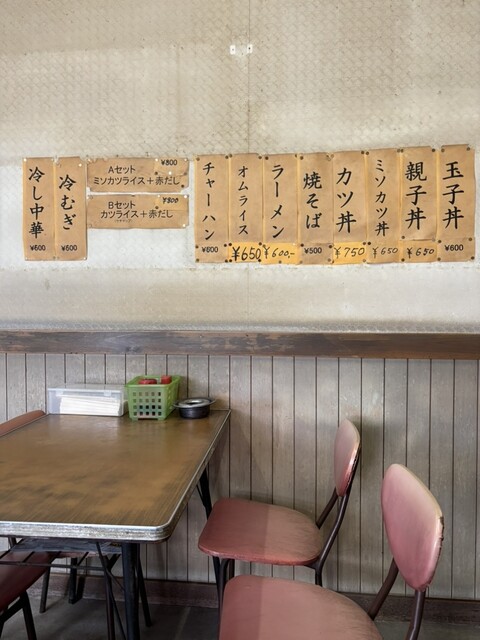 玉子丼
¥600
親子丼
¥650
ミソカツ丼
¥650
カツ丼
¥750
焼そば
¥500
ラーメン
¥600,-
オムライス
¥650
チャーハン
¥600
Aセット
¥800
ミソカツライス+赤だし
Bセット
¥800
カツライス+赤だし
冷むぎ
¥600
冷し中華
¥600